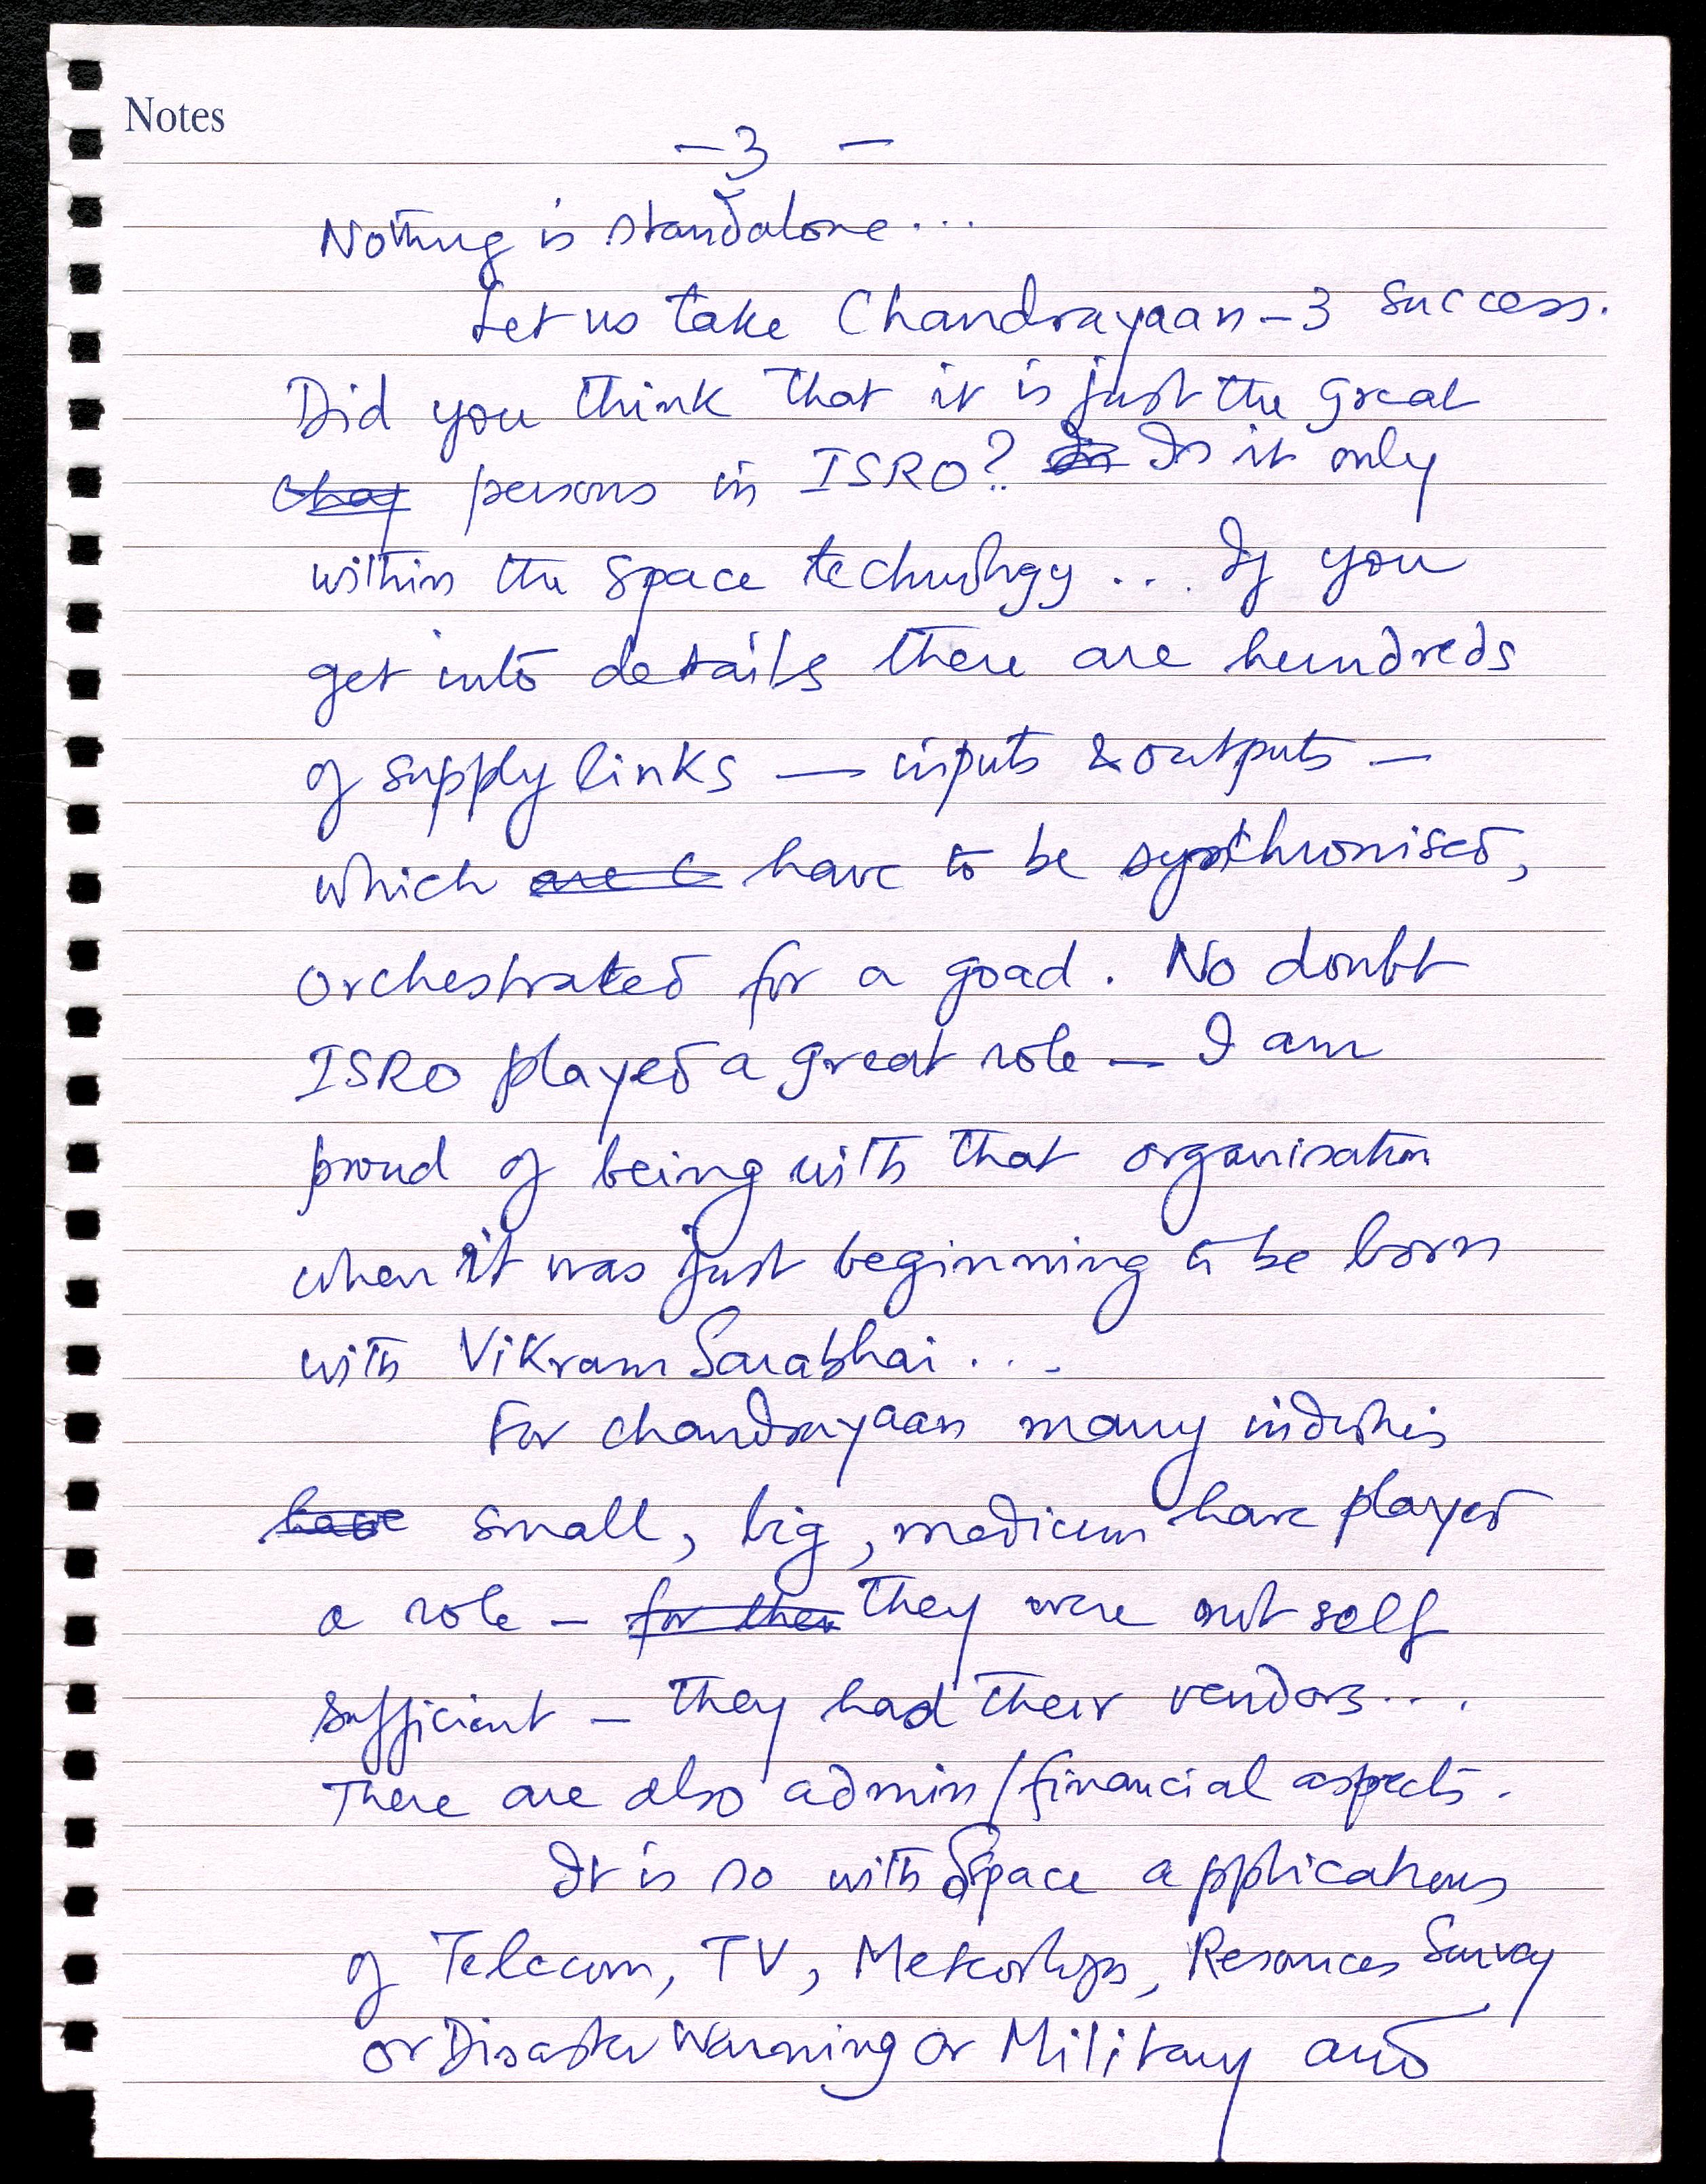 Notes
- 3 -
Nothing is standalone...
Let us take Chandrayaan-3 success.
Did you think that it is just the great
persons in ISRO? Is it only
within the space technology... If you
get into details there are hundreds
of supply links — inputs & outputs —
which have to be synchronised,
orchestrated for a goad. No doubt
ISRO played a great role — I am
proud of being with that organisation
when it was just beginning to be born
with Vikram Sarabhai...
For chandrayaan many industries
have small, big, medium have played
a role - for their they were not self
sufficient - they had their vendors....
There are also admin/financial aspects.
It is so with Space applications
of Telecom, TV, Meteorology, Resources Survey
or Disaster Warning or Military and